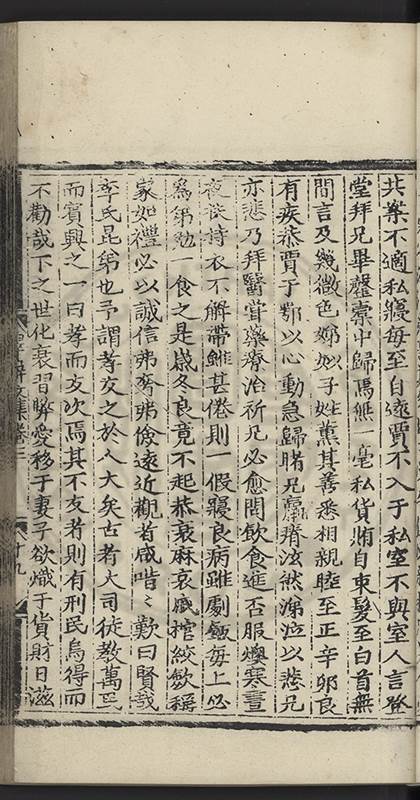 共業不適私寢每至自遠賈不入于私室不與室人言登
堂拜兄畢罄橐中歸焉無一毫私貨賄自束髮至白首無
間言及幾微色娜姒子姓薰其善悉相親睦至正辛卯良
有疾恭賈于鄂以心動急歸睹兄羸瘠泫然涕泣以悲兄
亦悲乃拜醫嘗藥療治祈兄必愈問飲食進否服燠寒亶
夜袵持衣不解帶雖甚倦則一假寢良病雖劇飯每上必
為弟勉一食之是歲冬良竟不起恭衰麻哀戚棺絞斂稱
家如禮必以誠信弗奢弗儉遠近觀者咸喈〻歎曰賢哉
李氏昆弟也予謂孝友之於人大矣古者大司徒教萬民
而賓興之一曰孝而友次焉其不友者則有刑民烏得而
不勸哉下之世化衰習弊愛移于妻子欲熾于貨財日滋
文集卷三
十九